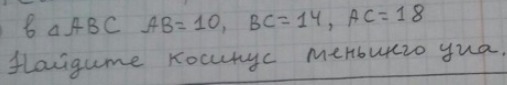 в △ABC AB=10, BC=14, AC=18
Найдите косинус меньшего угла.